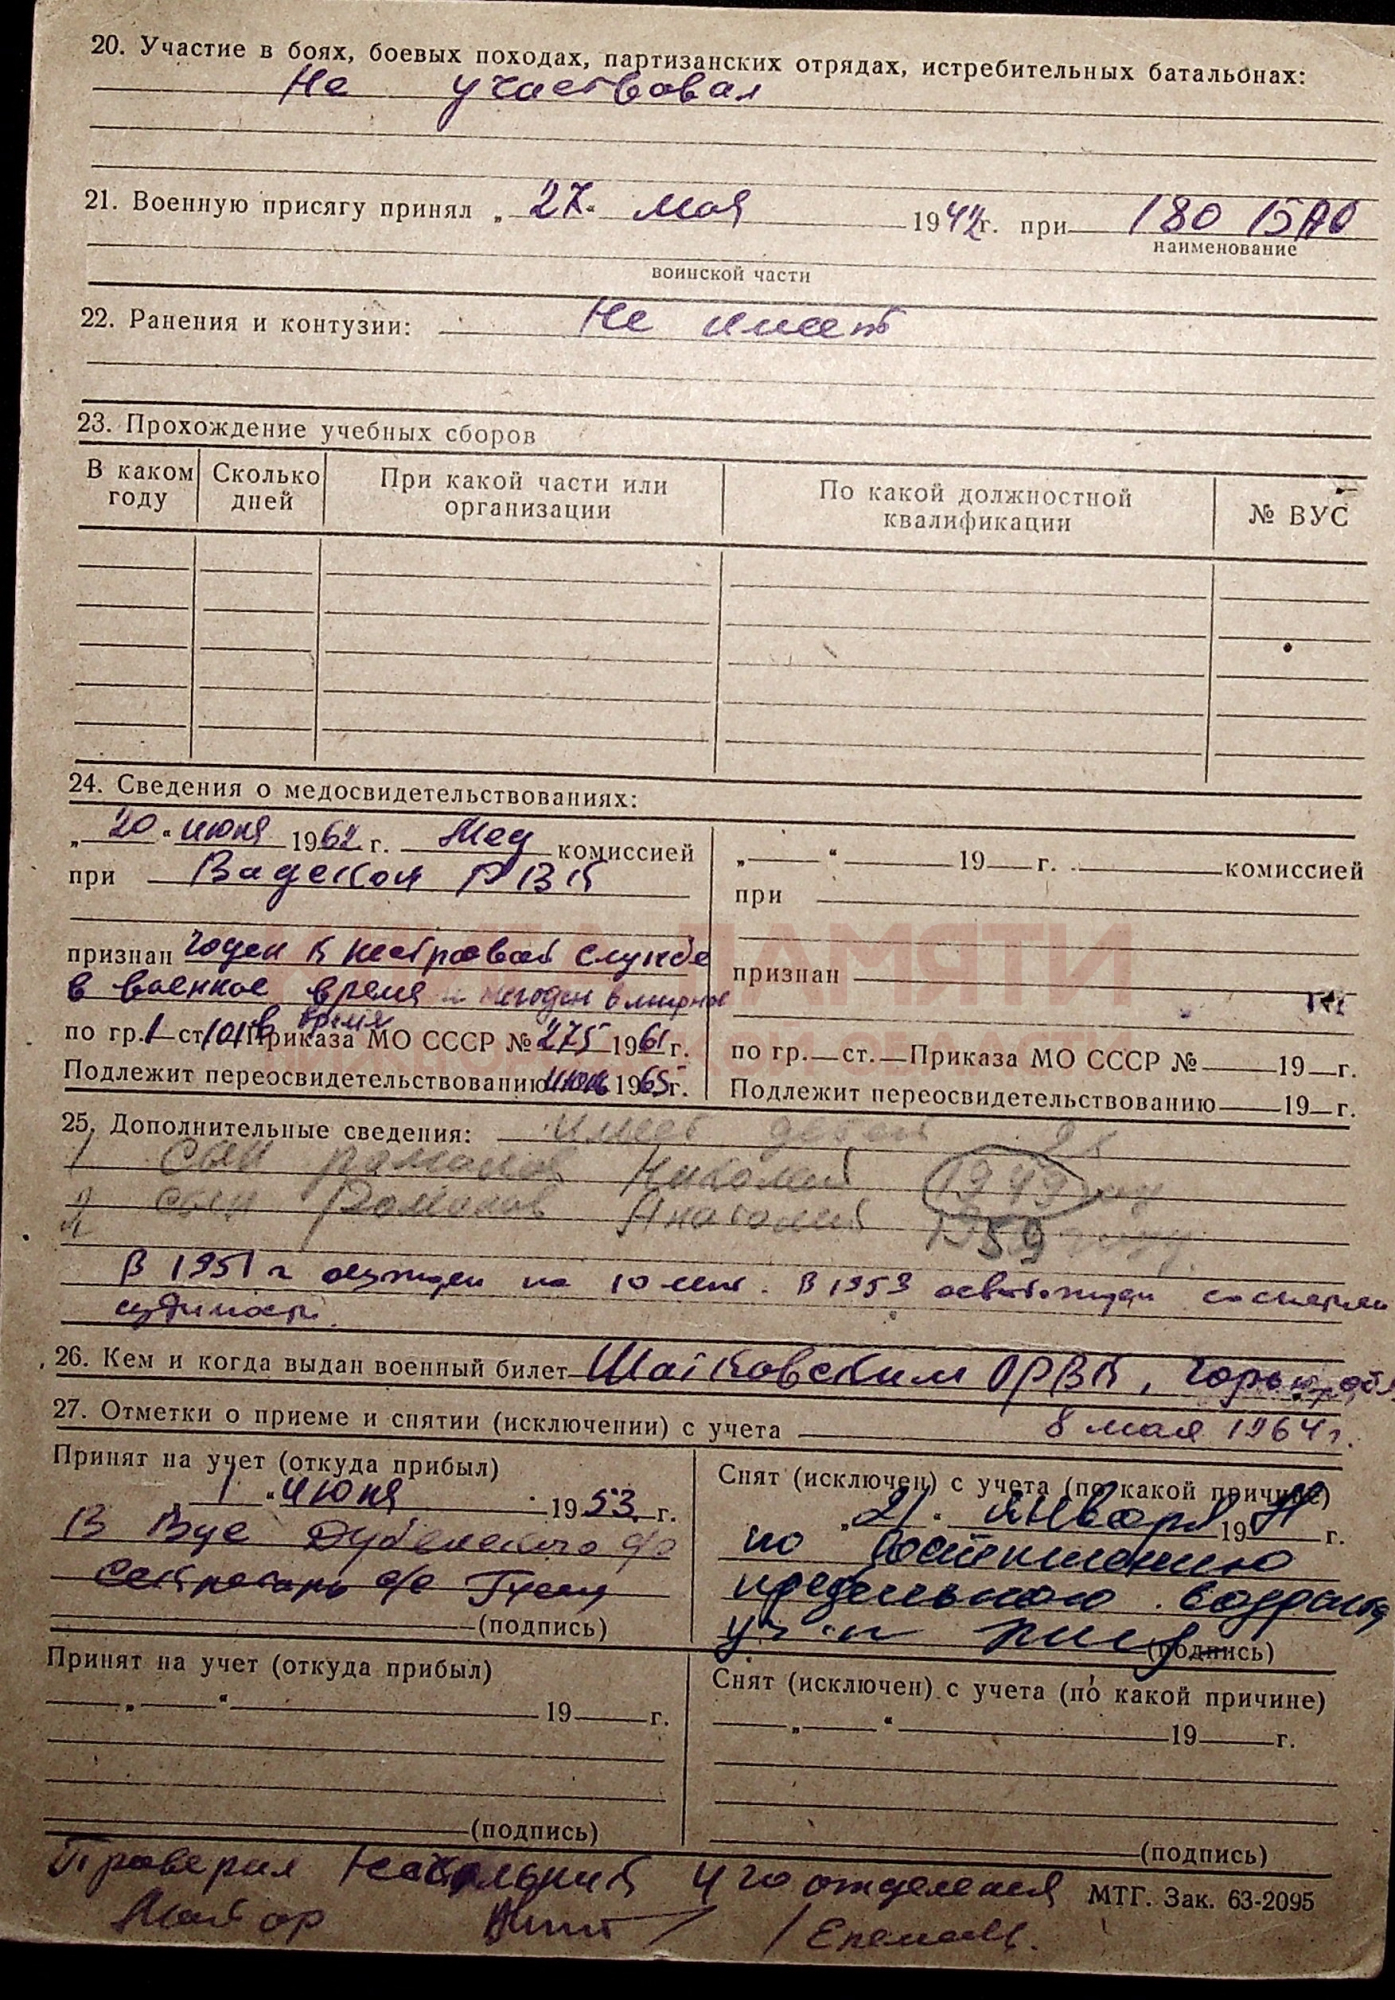 20. Участие в боях, боевых походах, партизанских отрядах, истребительных батальонах:
Не участвовал
21. Военную присягу принял „ 27 “ мая 1942 г. при 180 БАО
наименование
воинской части
22. Ранения и контузии: Не имеет
23. Прохождение учебных сборов
В каком году
Сколько дней
При какой части или организации
По какой должностной квалификации
№ ВУС
24. Сведения о медосвидетельствованиях:
„ 20 “ июня 1962 г. Мед комиссией
при Вадском РВК
признан годен к нестроевой службе
в военное время и негоден в мирное
в время
по гр. 1 ст. 101 Приказа МО СССР № 275 1961 г.
Подлежит переосвидетельствованию июнь 1965 г.
„ “ 19 г. комиссией
при
признан
по гр. ст. Приказа МО СССР № 19 г.
Подлежит переосвидетельствованию 19 г.
25. Дополнительные сведения: имеет детей 2х
1 сын Романов Николай 1949 году
2 сын Романов Анатолий 1959 году
В 1951 г осужден на 10 лет. В 1953 освобожден со снятием
судимости.
26. Кем и когда выдан военный билет Шатковским ОРВК, Горьк. обл.
27. Отметки о приеме и снятии (исключении) с учета 8 мая 1964 г.
Принят на учет (откуда прибыл)
1 “ июня 1953 г.
В Вус Дубенского с/с
секретарь с/с
(подпись)
Снят (исключен) с учета (по какой причине)
„ 21 “ января 19 г.
по достижению
предельного возраста
(подпись)
Принят на учет (откуда прибыл)
„ “ 19 г.
(подпись)
Снят (исключен) с учета (по какой причине)
„ “ 19 г.
(подпись)
Проверил Начальник 4го отделения
МТГ. Зак. 63-2095
Майор
ПАМЯТИ